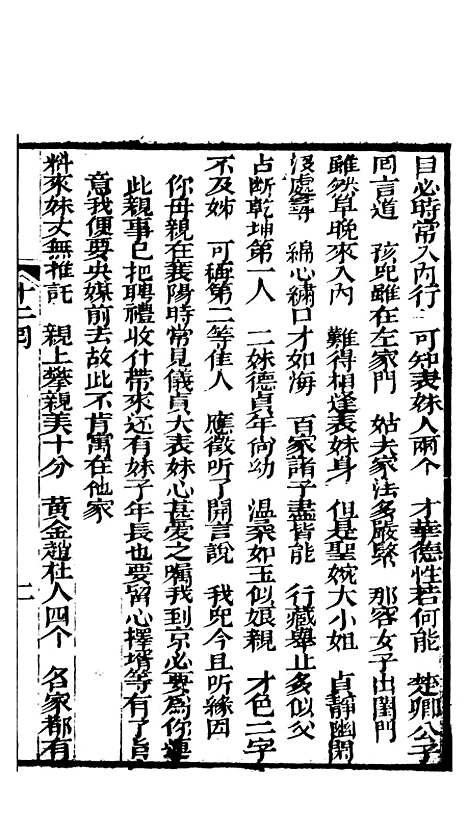 目必時常入內行 可知表妹人兩个 才華德性若何能 楚卿公子
囘言道 孩兒雖在左家門 姑夫家法多嚴緊 那容女子出閨門
雖然早晚來入內 難得相逢表妹身 但是聖婉大小姐 貞靜幽閑
沒處尋 綿心繡口才如海 百家諸子盡皆能 行藏舉止多似父
占斷乾坤第一人 二妹德貞年尙幼 溫柔如玉似娘親 才色二字
不及姊 可稱第二等佳人 應徵听了開言說 我兒今且听緣因
你母親在襄陽時常見儀貞大表妹心甚愛之囑我到京必要為你連
此親事已把聘禮收什帶來还有妹子年長也要留心擇壻等有了自
意我便要央媒前去故此不肯寓在他家
料來妹丈無推託 親上攀親美十分 黃金趙杜人四个 名家都有
十二囘 二